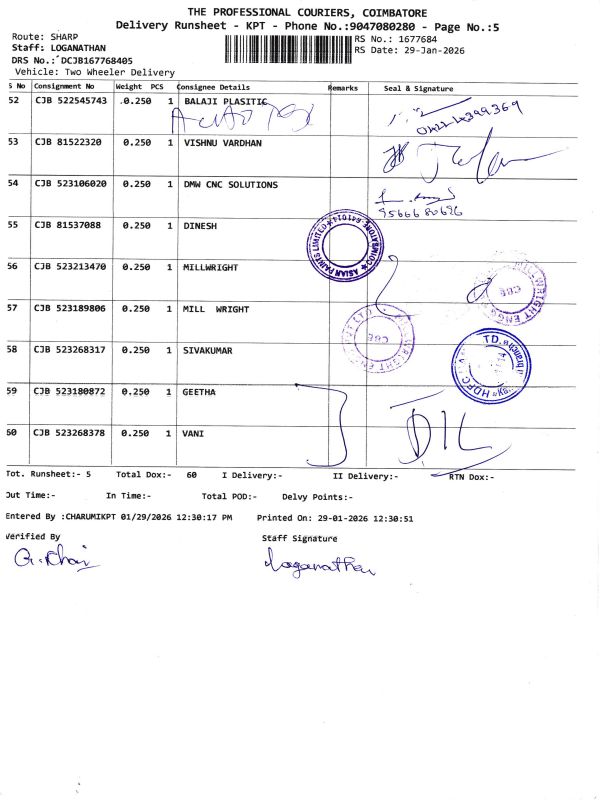 THE PROFESSIONAL COURIERS, COIMBATORE
Delivery Runsheet - KPT - Phone No.:9047080280 - Page No.:5
Route: SHARP
RS No.: 1677684
Staff: LOGANATHAN
RS Date: 29-Jan-2026
DRS No.: DCJB167768405
Vehicle: Two Wheeler Delivery
S No Consignment No Weight PCS Consignee Details Remarks Seal & Signature
52 CJB 522545743 .0.250 1 BALAJI PLASITIC
53 CJB 81522320 0.250 1 VISHNU VARDHAN
54 CJB 523106020 0.250 1 DMW CNC SOLUTIONS
9566680686
55 CJB 81537088 0.250 1 DINESH
ASIAN PAINTS LIMITED ★ COIMBATORE-641014 ★
56 CJB 523213470 0.250 1 MILLWRIGHT
MILLWRIGHT ENGG
CBE
57 CJB 523189806 0.250 1 MILL WRIGHT
CBE
58 CJB 523268317 0.250 1 SIVAKUMAR
HDFC
TD.
59 CJB 523180872 0.250 1 GEETHA
60 CJB 523268378 0.250 1 VANI
DIL
Tot. Runsheet:- 5 Total Dox:- 60 I Delivery:- II Delivery:- RTN Dox:-
Out Time:- In Time:- Total POD:- Delvy Points:-
Entered By :CHARUMIKPT 01/29/2026 12:30:17 PM Printed On: 29-01-2026 12:30:51
Verified By Staff Signature
Loganathan